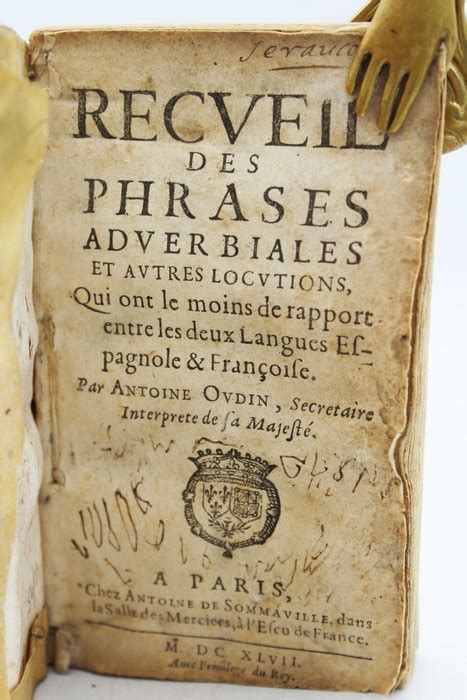 RECVEIL
DES
PHRASES
ADVERBIALES
ET AVTRES LOCVTIONS,
Qui ont le moins de rapport
entre les deux Langues Eſ-
pagnole & Françoiſe.
Par ANTOINE OVDIN, Secretaire
Interprete de ſa Majeſté.
A PARIS,
Chez ANTOINE DE SOMMAVILLE, dans
la Salle des Merciers, à l'Eſcu de France.
M. DC XLVII.
Auec Priuilege du Roy.